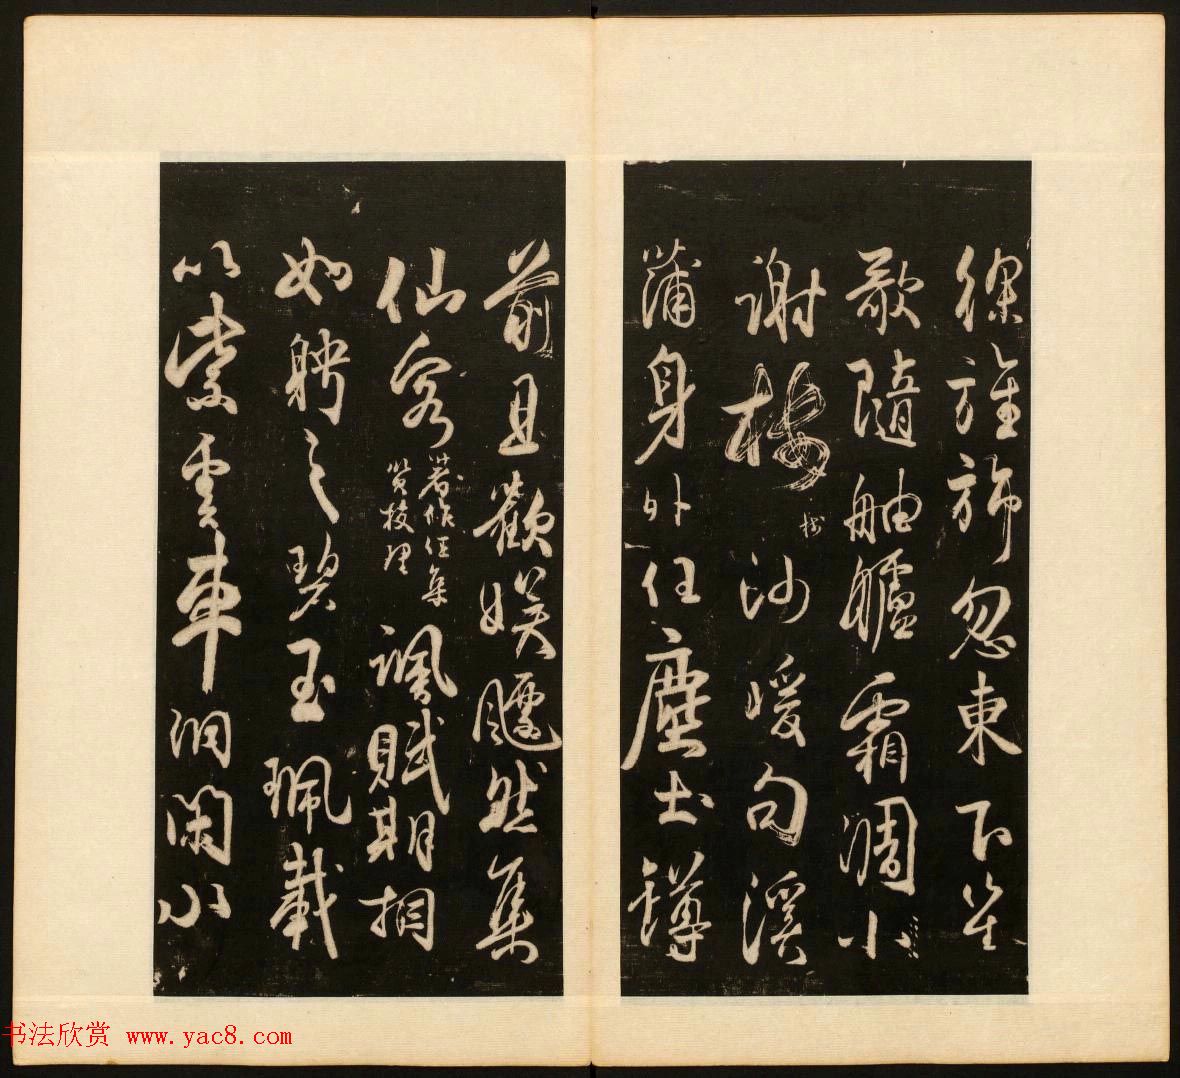 徐旌旆忽東下笙
歌隨舳艫霜凋小
謝樹沙暖句溪
蒲身外任塵土罇
前且歡娛飄然集
仙客著作任集賢校理諷賦期相
如聘之碧玉珮載
以紫雲車洞閑水
书法欣赏 www.yac8.com